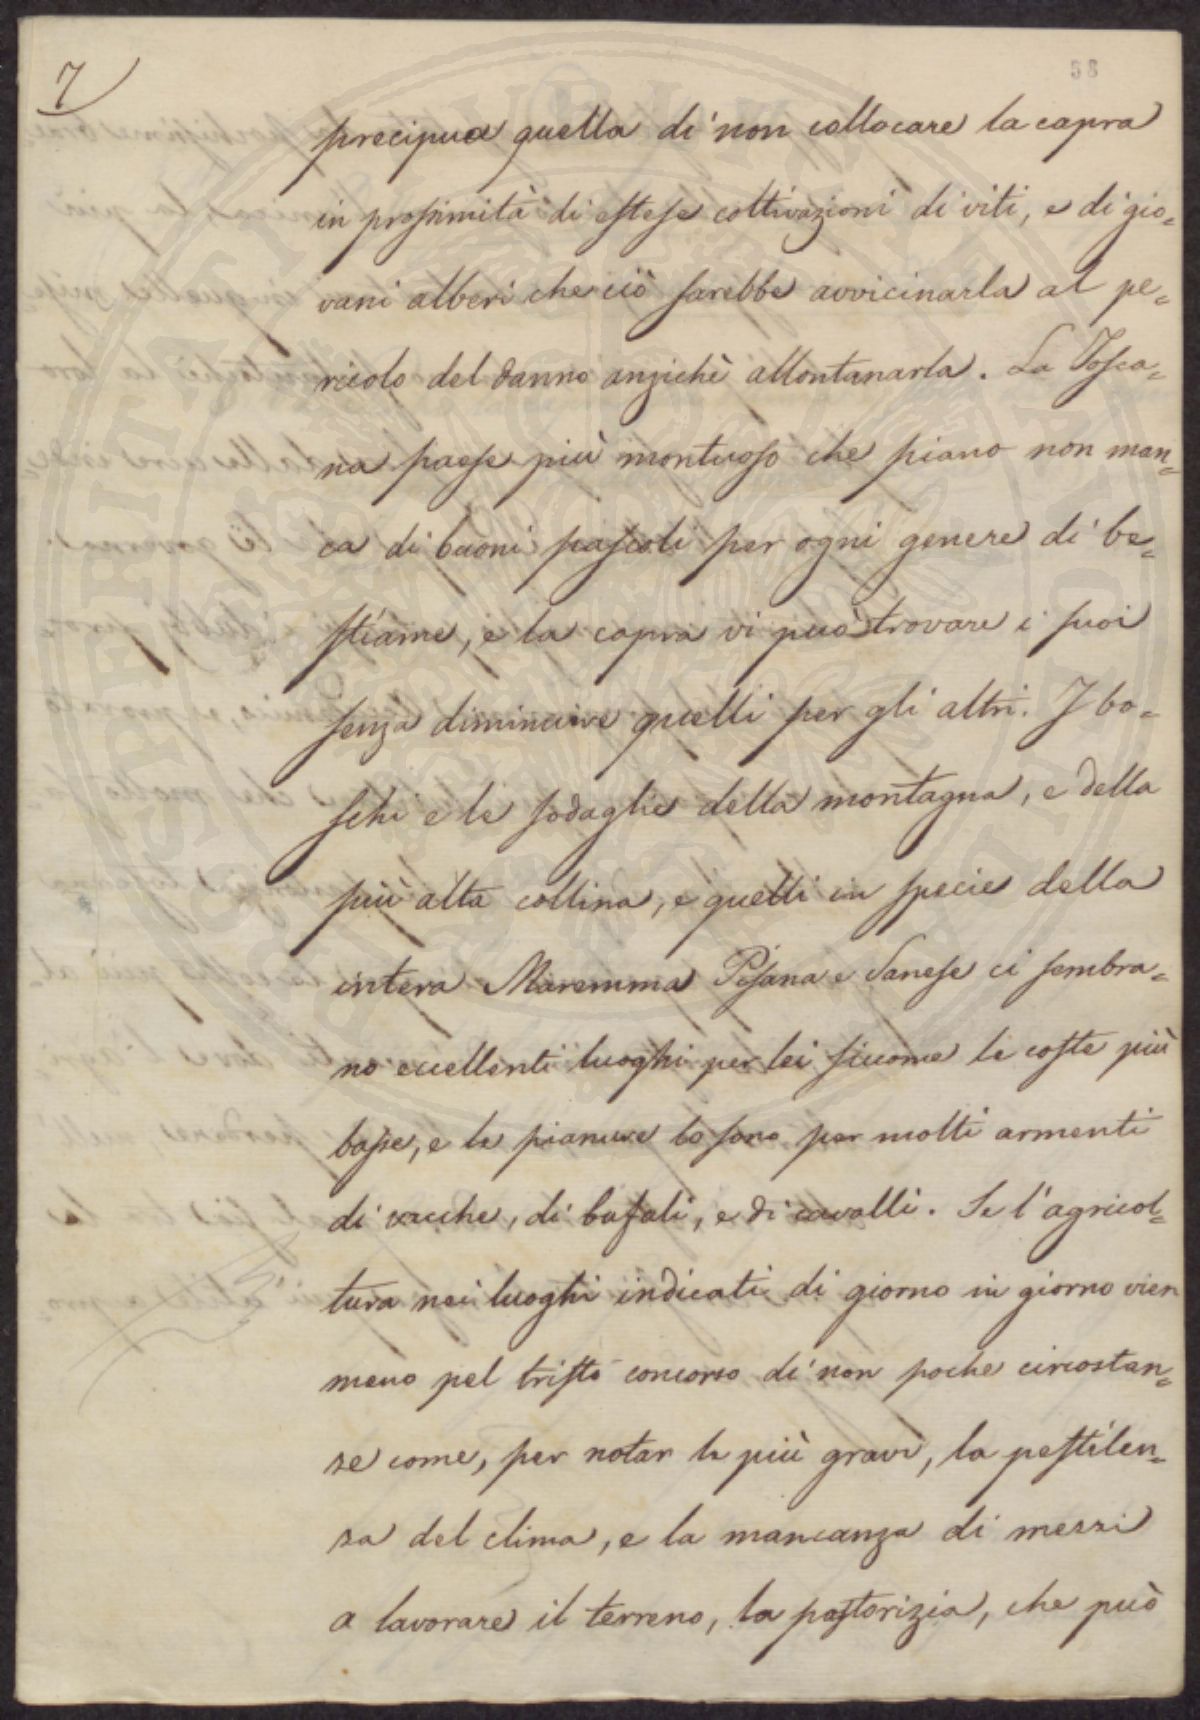 7
58
precipua quella di non collocare la capra
in prossimità di estese coltivazioni di viti, e di gio=
vani alberi che ciò sarebbe avvicinarla al pe=
ricolo del danno anzichè allontanarla. La Tosca=
na paese più montuoso che piano non man=
ca di buoni pascoli per ogni genere di be=
stiame, e la capra vi può trovare i suoi
senza diminuire quelli per gli altri. I bo=
schi e le sodaglie della montagna, e della
più alta collina, e quelli in specie della
intera Maremma Pisana e Sanese ci sembra=
no eccellenti luoghi per lei siccome le coste più
basse, e le pianure lo sono per molti armenti
di vacche, di bufali, e di cavalli. Se l'agricol=
tura nei luoghi indicati di giorno in giorno vien
meno pel tristo concorso di non poche circostan=
ze come, per notar le più gravi, la pestilen=
za del clima, e la mancanza di mezzi
a lavorare il terreno, la pastorizia, che può
PROSPERITATI PUBLICAE AUGENDAE